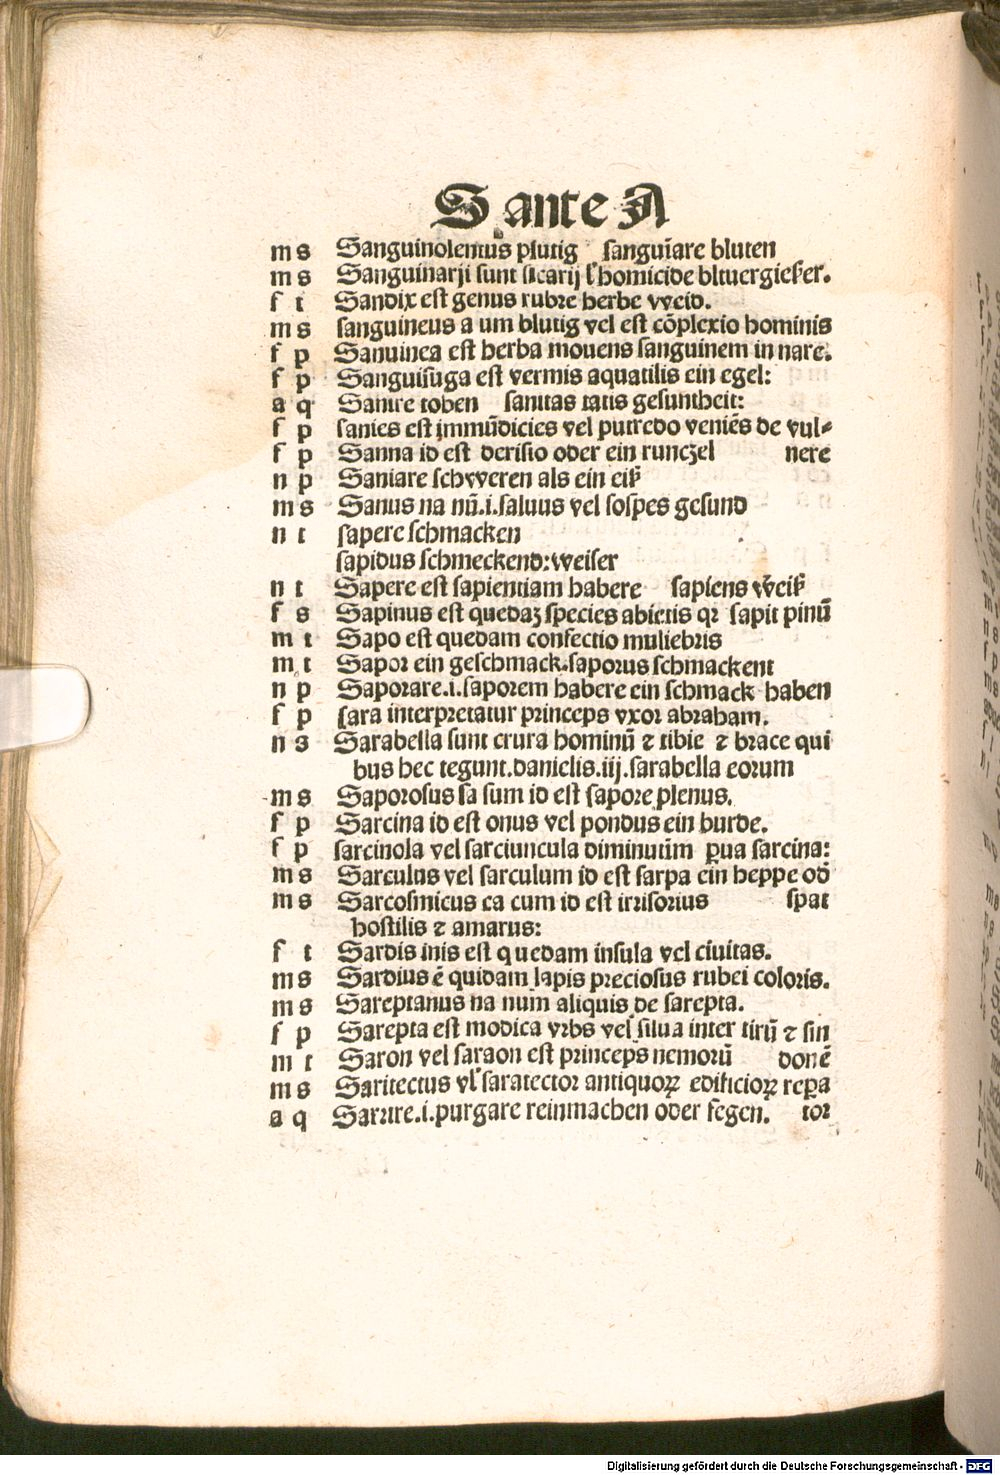 S ante A
m s Sanguinolentus plutig sanguīare bluten
m s Sanguinarij sunt sicarij ł homicide bltuergießer.
f t Sandix est genus rubre herbe vveid.
m s sanguineus a um blutig vel est cōplexio hominis
f p Sanuinea est herba mouens sanguinem in nare.
f p Sanguisuga est vermis aquatilis ein egel:
a q Sanire toben sanitas tatis gesuntheit:
f p sanies est immūdicies vel putredo veniēs de vul⸗
f p Sanna id est derisio oder ein runczel nere
n p Saniare schvveren als ein eiß
m s Sanus na nū.i.saluus vel sospes gesund
n t sapere schmacken
sapidus schmeckend:weiser
n t Sapere est sapientiam habere sapiens vveiß
f s Sapinus est quedaꝫ species abietis qꝛ sapit pinū
m t Sapo est quedam confectio muliebris
m t Sapor ein geschmack.saporus schmackent
n p Saporare.i.saporem habere ein schmack haben
f p sara interpretatur princeps vxor abraham.
n s Sarabella sunt crura hominū ⁊ tibie ⁊ brace qui
bus hec tegunt.danielis.iij.sarabella eorum
m s Saporosus sa sum id est sapore plenus.
f p Sarcina id est onus vel pondus ein burde.
f p sarcinola vel sarciuncula diminutim ꝑua sarcina:
m s Sarculus vel sarculum id est sarpa ein heppe od̄
m s Sarcosinicus ca cum id est irrisorius spat
hostilis ⁊ amarus:
f t Sardis inis est quedam insula vel ciuitas.
m s Sardius ē quidam lapis preciosus rubei coloris.
m s Sareptanus na num aliquis de sarepta.
f p Sarepta est modica vrbs vel silua inter tirū ⁊ sin
m t Saron vel saraon est princeps nemorū donē
m s Saritectus vł saratector antiquoꝝ edificioꝝ reꝑa
a q Sarrire.i.purgare reinmachen oder fegen. tor
Digitalisierung gefördert durch die Deutsche Forschungsgemeinschaft - DFG